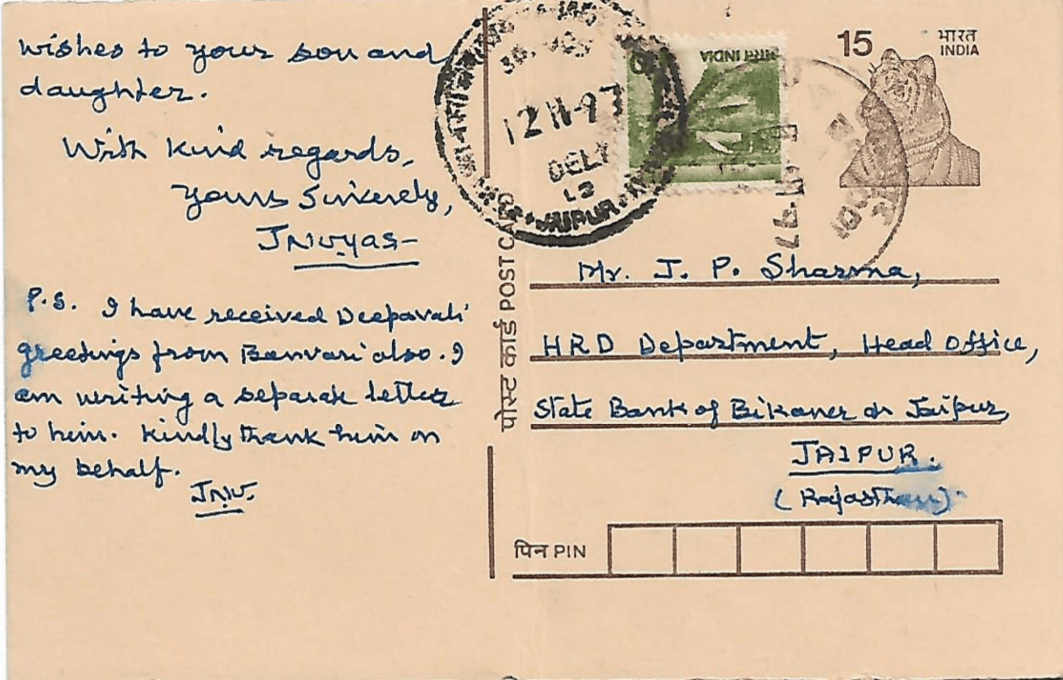 wishes to your son and
daughter.
With kind regards,
Yours Sincerely,
JNVyas
P.S. I have received Deepavali
greetings from Banvari also. I
am writing a separate letter
to him. Kindly thank him on
my behalf.
JNV.
15
भारत
INDIA
भारत INDIA
12 11-97
DELY
12
JAIPUR
पोस्ट कार्ड POST CARD
Mr. J. P. Sharma,
HRD Department, Head Office,
State Bank of Bikaner & Jaipur,
JAIPUR.
(Rajasthan).
पिन PIN